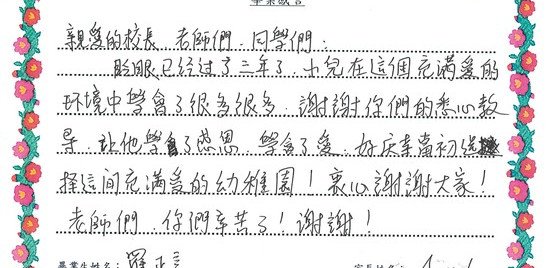 畢業感言
親愛的校長 老師們、同學們：
眨眼已经过了三年了，小兒在這個充滿愛的
环境中學會了很多很多，謝謝你們的悉心教
导，让他學會了感恩，學會了愛，好庆幸當初选
择這间充滿爱的幼稚園！衷心謝謝大家！
老師們，你們辛苦了！謝謝！
畢業生姓名：羅